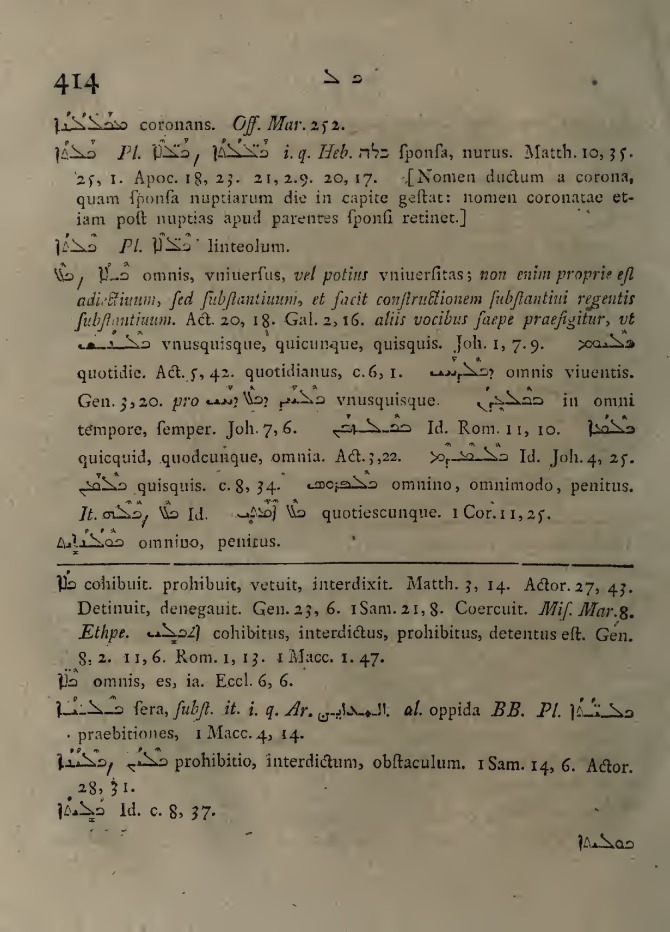 414 ܟ ܠ
coronans. Off. Mar. 252.
ܟܠܬܐ Pl. i. q. Heb. כלה ſponſa, nurus. Matth. 10, 35.
25, 1. Apoc. 18, 23. 21, 2.9. 20, 17. [Nomen ductum a corona,
quam ſponſa nuptiarum die in capite geſtat: nomen coronatae et-
iam poſt nuptias apud parentes ſponſi retinet.]
ܟܠܬܐ Pl. linteolum.
ܟܠ, omnis, vniuerſus, vel potius vniuerſitas; non enim proprie eſt
adiectiuum, ſed ſubſtantiuum, et facit conſtructionem ſubſtantiui regentis
ſubſtantiuum. Act. 20, 18. Gal. 2, 16. aliis vocibus ſaepe praefigitur, vt
ܟܠܢܫ vnusquisque, quicunque, quisquis. Joh. 1, 7.9. ܟܠܝܘܡ
quotidie. Act. 5, 42. quotidianus, c. 6, 1. omnis viuentis.
Gen. 3, 20. pro vnusquisque. ܒܟܠܙܒܢ in omni
tempore, ſemper. Joh. 7, 6. Id. Rom. 11, 10. ܟܠܡܐ
quicquid, quodcunque, omnia. Act. 3,22. ܟܠܡܕܡ Id. Joh. 4, 25.
ܟܠܡܢ quisquis. c. 8, 34. omnino, omnimodo, penitus.
It. Id. quotiescunque. 1 Cor. 11, 25.
omnino, penitus.
ܟܠܐ cohibuit. prohibuit, vetuit, interdixit. Matth. 3, 14. Actor. 27, 43.
Detinuit, denegauit. Gen. 23, 6. 1 Sam. 21, 8. Coercuit. Miſ. Mar. 8.
Ethpe. ܐܬܟܠܝ cohibitus, interdictus, prohibitus, detentus eſt. Gen.
8, 2. 11, 6. Rom. 1, 13. 1 Macc. 1. 47.
ܟܠܐ omnis, es, ia. Eccl. 6, 6.
ſera, ſubſt. it. i. q. Ar. al. oppida BB. Pl.
praebitiones, 1 Macc. 4, 14.
prohibitio, interdictum, obſtaculum. 1 Sam. 14, 6. Actor.
28, 31.
ܟܠܝܬܐ Id. c. 8, 37.
ܟܘܠܝܬܐ